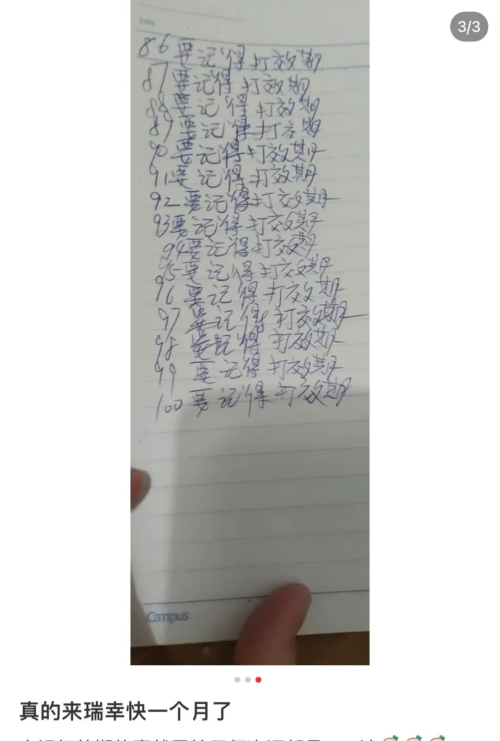 3/3
86要记得打效期
87要记得打效期
88要记得打效期
89要记得打效期
90要记得打效期
91要记得打效期
92要记得打效期
93要记得打效期
94要记得打效期
95要记得打效期
96要记得打效期
97要记得打效期
98要记得打效期
99要记得打效期
100要记得打效期
Campus
真的来瑞幸快一个月了